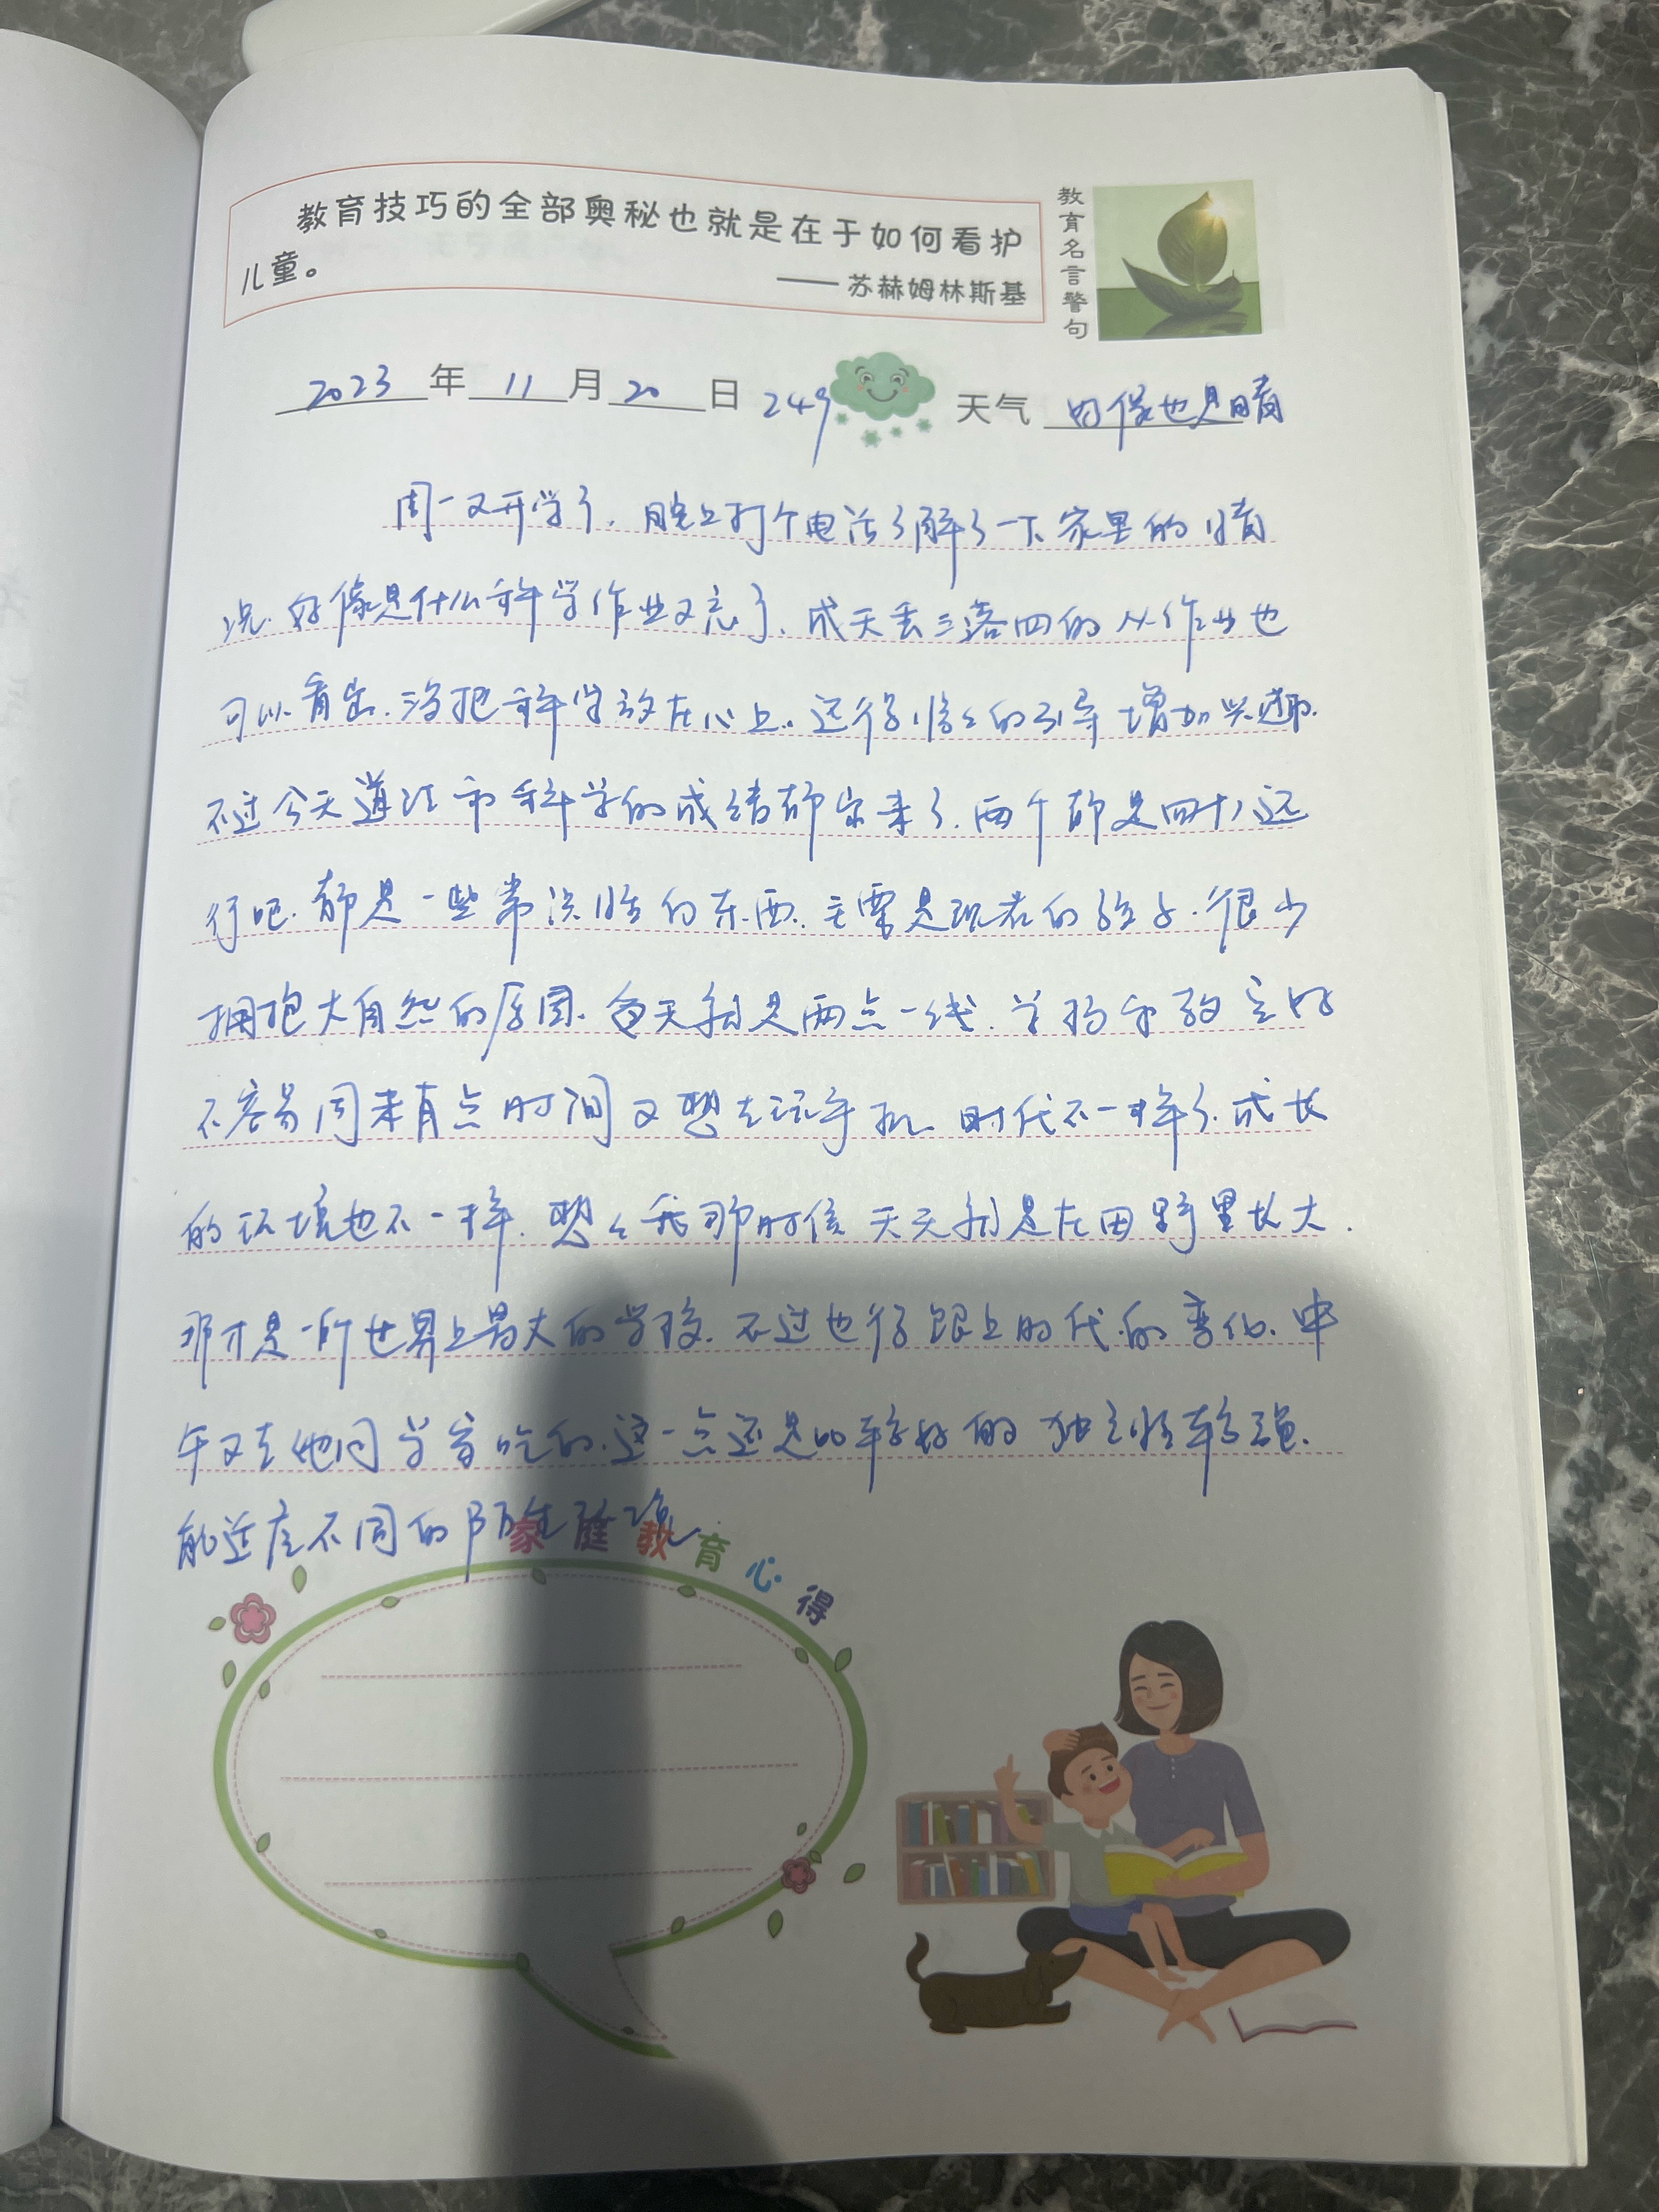 教育技巧的全部奥秘也就是在于如何看护
儿童。
——苏赫姆林斯基
教育名言警句
2023年11月20日 249 天气 好像也是晴
周一又开学了，晚上打个电话了解了一下家里的情
况.好像是什么科学作业又忘了、成天丢三落四的从作业也
可以看出.没把科学放在心上.还得慢々的引导增加兴趣.
不过今天道法和科学的成绩都出来了.两个都是四十八还
行吧.都是一些常识性的东西.主要是现在的孩子.很少
拥抱大自然的原因.每天都是两点一线.学校和教室好
不容易周末有点时间又想去玩手机.时代不一样了.成长
的环境也不一样.想々我那时候天天都是在田野里长大.
那才是一所世界上最大的学校.不过也得跟上时代的变化.中
午又去他同学家吃的.这一点还是比较好的独立性较强.
能适应不同的陌生环境.
家庭教育心得